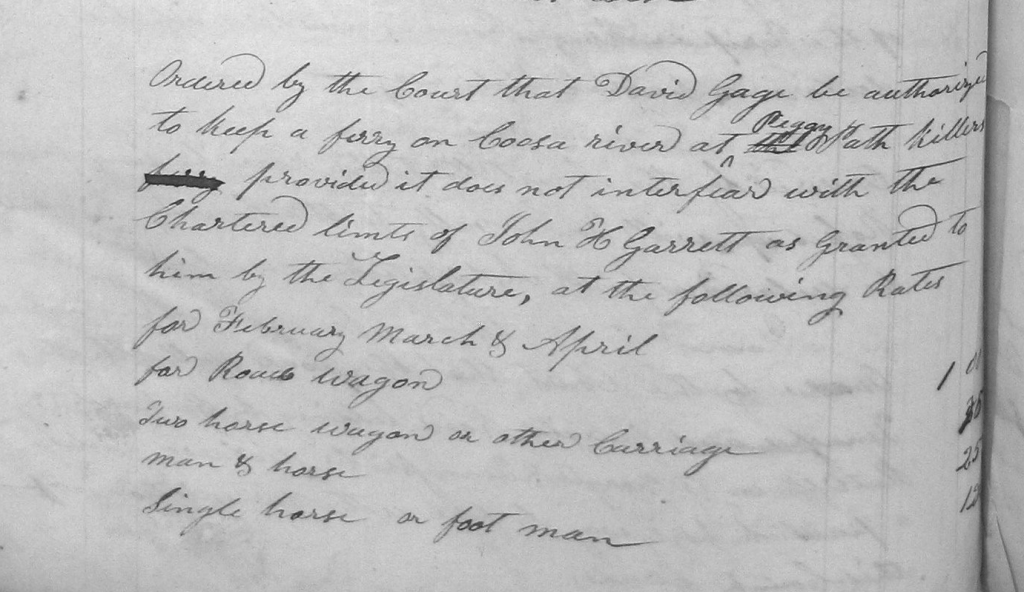 Ordered by the Court that David Gage be authorized
to keep a ferry on Coosa river at Peggy Path Killers
provided it does not interfear with the
Chartered limts of John H Garrett as Granted to
him by the Legislature, at the following Rates
for February March & April
for Road wagon 1 00
Two horse wagon or other Carriage
man & horse 25
Single horse or foot man 12